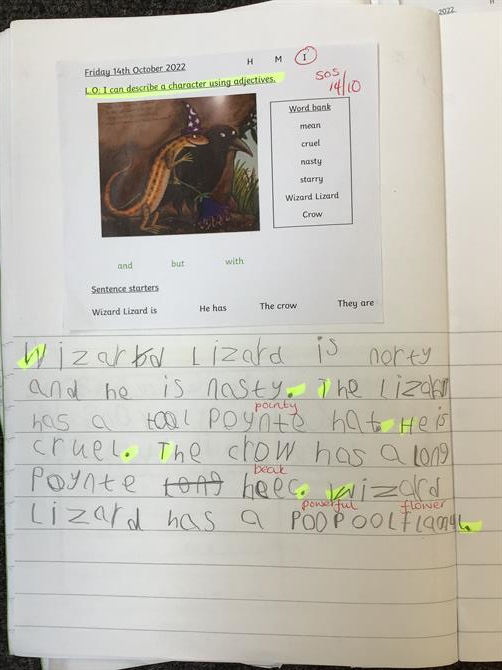 2022
H M I
Friday 14th October 2022
L.O: I can describe a character using adjectives.
SOS
14/10
Word bank
mean
cruel
nasty
starry
Wizard Lizard
Crow
and but with
Sentence starters
Wizard Lizard is He has The crow They are
Wizard Lizard is norty
and he is nasty. The Lizard
pointy
has a tool Poynte hat. He is
cruel. The crow has a long
beak
Poynte long
powerful flower
Wizard
Lizard has a POOPOOL